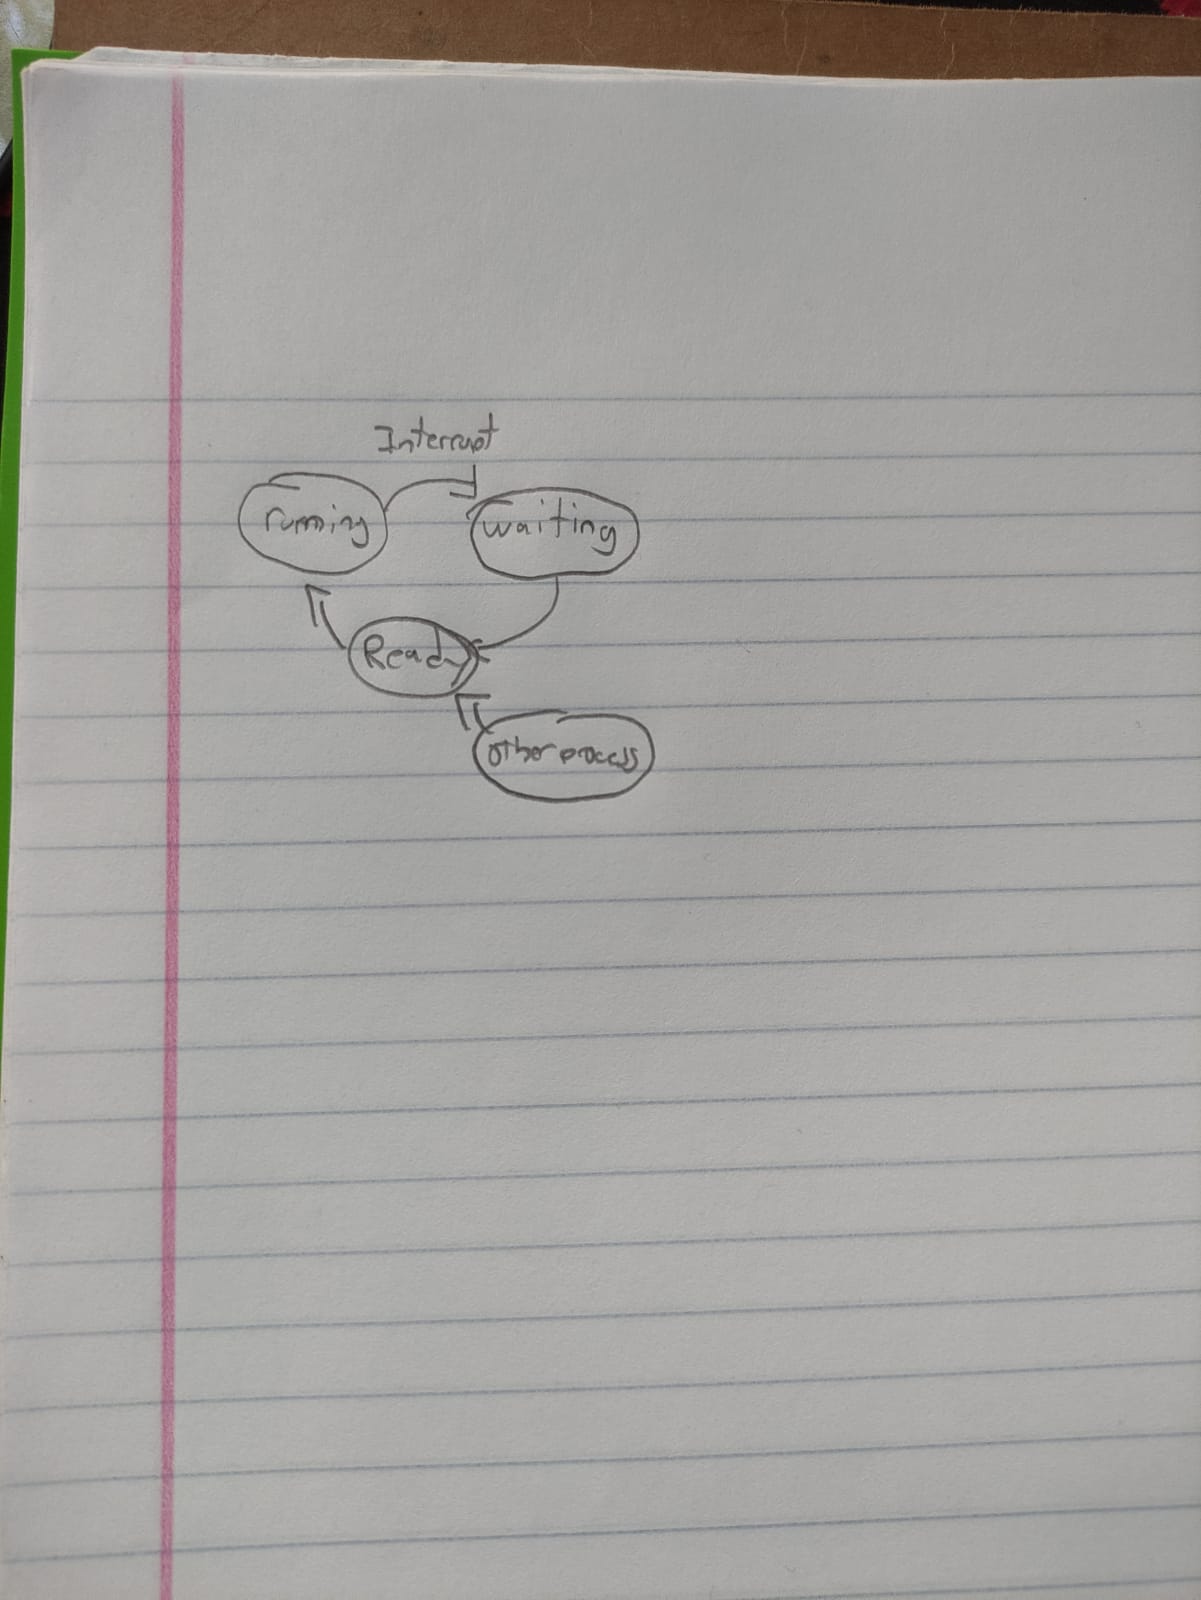 Interrupt
running
waiting
Ready
other process